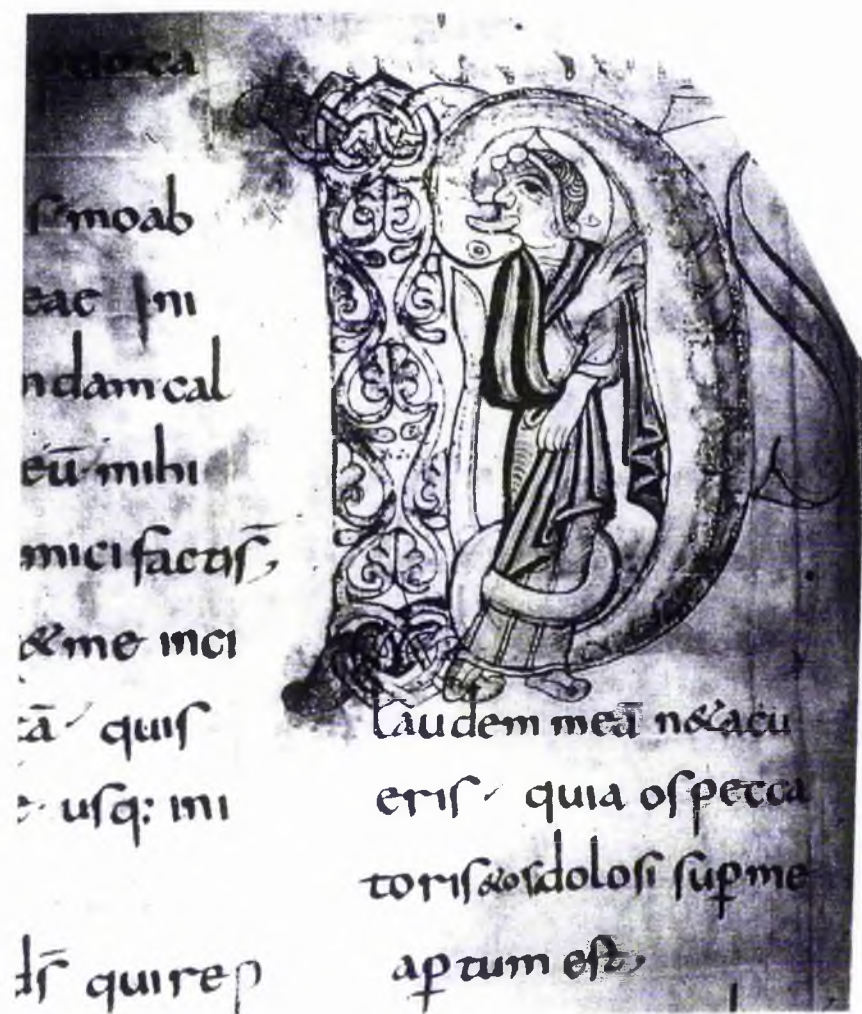 ca
moab
eae Ini
ndam cal
eū mihi
mici facti s̄,
& me inci
tā quis
e usq: ini
ds̄ qui rep
D
Laudem meā n& acu
eris quia os pecca
toris & os dolosi suꝑ me
aꝑtum est,